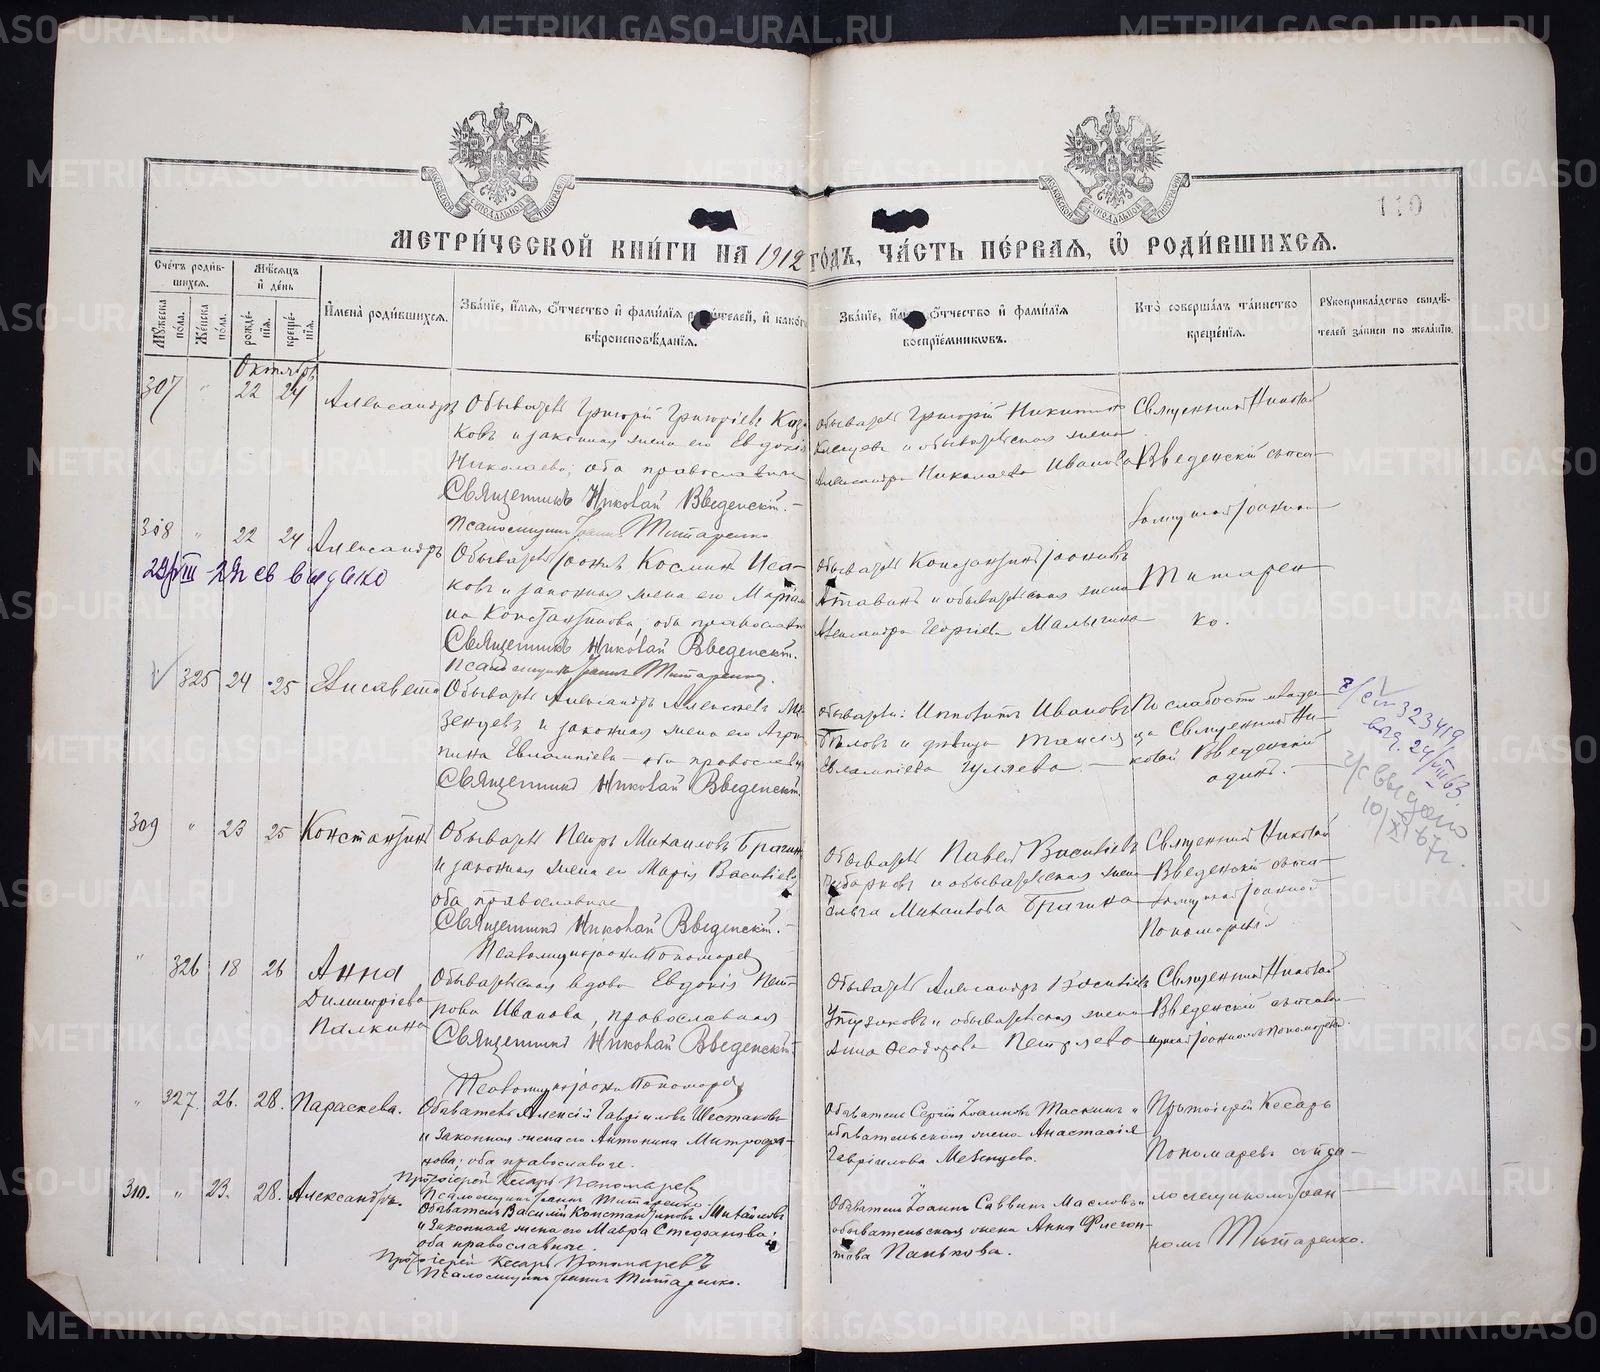 METRIKI.GASO-URAL.RU
МЕТРИ́ЧЕСКОЙ КНИ́ГИ НА 1912 ГО́ДЪ, ЧА́СТЬ ПЕ́РВАЯ, Ѡ РОДИ́ВШИХСЯ.
110
Сче́тъ роди́вшихся.
Мꙋжеска по́ла.
Же́нска по́ла.
Мѣ́сяцъ и де́нь
рожде́нїя.
креще́нїя.
И҆мена̀ роди́вшихся.
Зва́нїе, и҆́мя, ѻ҆́тчество и҆ фами́лїя роди́телей, и҆ како́гѡ вѣроисповѣ́данїя.
Зва́нїе, и҆́мя, ѻ҆́тчество и҆ фами́лїя воспрїе́мникѡвъ.
Кто̀ соверша́лъ та́инство креще́нїя.
Рꙋкоприкла́дство свидѣ́телей за́писи по жела́нїю.
Октябрь
307 " 22 24 Александръ
Обыватель Григорій Григоріевъ Каза-
ковъ и законная жена его Евдокія
Николаева; оба православные
Священникъ Николай Введенскій.
Псаломщикъ Іоаннъ Титаренко
Обыватель Григорій Никитинъ
и обывательская жена
Александра Николаева Иванова
Священникъ Николай
Введенскій съ пса-
ломщикомъ Іоанномъ
Титарен-
ко.
308 " 22 24 Александръ
Обыватель Іоаннъ Косминъ Иса-
ковъ и законная жена его Маріам-
на Константинова, оба православные
Священникъ Николай Введенскій.
Псаломщикъ Іоаннъ Титаренко.
Обыватель Константинъ Іоанновъ
и обывательская жена
Александра Георгіева Малыгина
325 24 25 Елисавета
Обыватель Александръ Алексіевъ Ме-
зенцевъ и законная жена его Агрип-
пина Евлампіева оба православные
Священникъ Николай Введенскій.
Обыватели: Ипполитъ Ивановъ
Бѣловъ и дѣвица Таисія
Евлампіева Гуляева.
По слабости младен-
ца Священникъ Ни-
колай Введенскій
одинъ.
323419
выд. 24/VIII 63.
выдано
10/XI 67г.
309 " 23 25 Константинъ
Обыватель Петръ Михаиловъ Брагинъ
и законная жена его Марія Васильева
оба православные
Священникъ Николай Введенскій.
Псаломщикъ Іоаннъ Пономаревъ
Обыватель Павелъ Васильевъ
и обывательская жена
Ольга Михаилова Брагина
Священникъ Николай
Введенскій съ пса-
ломщикомъ Іоанномъ
Пономаревымъ
" 326 18 26 Анна
Димитріева
Палкина
Обывательская вдова Евдокія Пет-
рова Иванова, православная
Священникъ Николай Введенскій.
Псаломщикъ Іоаннъ Пономаревъ
Обыватель Александръ Васильевъ
и обывательская жена
Анна Ѳеодорова
Священникъ Николай
Введенскій съ псалом-
щикомъ Іоанномъ Пономаревымъ.
" 327. 26. 28. Параскева.
Обыватель Алексій Гавріиловъ Шестаковъ
и законная жена его Антонина Митрофа-
нова; оба православные.
Протоіерей Кесарь Пономаревъ
Псаломщикъ Іоаннъ Титаренко
Обыватель Сергій Іоанновъ Таскинъ и
обывательская жена Анастасія
Гавріилова Мезенцева.
Протоіерей Кесарь
Пономаревъ съ пса-
ломщикомъ Іоан-
номъ Титаренко.
310. " 23. 28. Александръ.
Обыватель Василій Константиновъ Михайловъ
и законная жена его Мавра Стефанова;
оба православные.
Протоіерей Кесарь Пономаревъ
Псаломщикъ Іоаннъ Титаренко.
Обыватель Іоаннъ Саввинъ Масловъ и
обывательская жена Анна Флегон-
това Панькова.